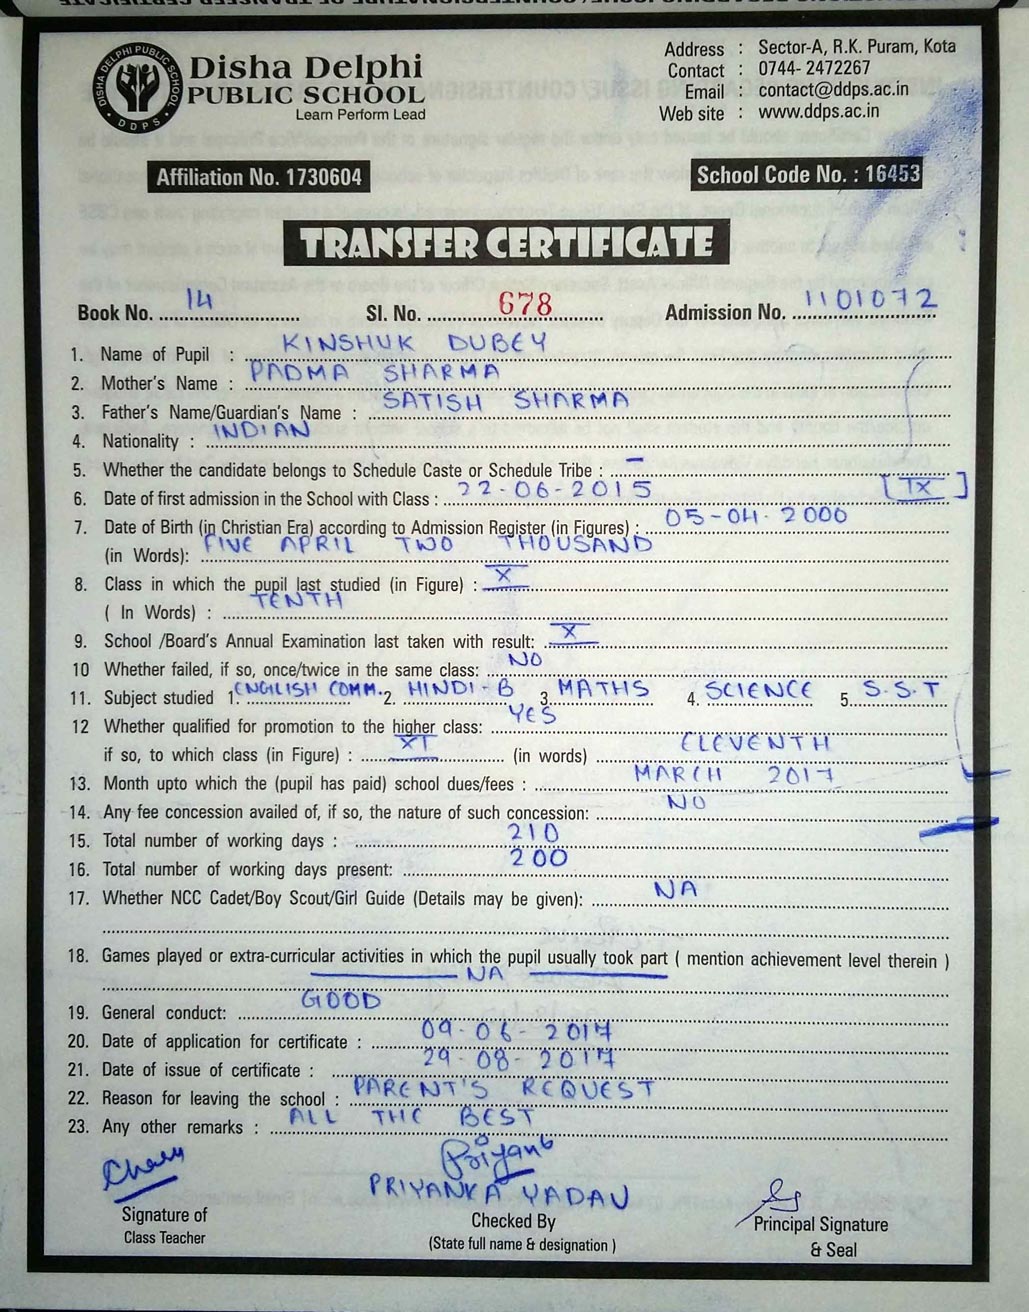 DISHA DELPHI PUBLIC SCHOOL
DDPS
Disha Delphi
PUBLIC SCHOOL
Learn Perform Lead
Address : Sector-A, R.K. Puram, Kota
Contact : 0744- 2472267
Email : contact@ddps.ac.in
Web site : www.ddps.ac.in
Affiliation No. 1730604
School Code No. : 16453
TRANSFER CERTIFICATE
Book No. 14 Sl. No. 678 Admission No. 1101072
1. Name of Pupil : KINSHUK DUBEY
2. Mother's Name : PADMA SHARMA
3. Father's Name/Guardian's Name : SATISH SHARMA
4. Nationality : INDIAN
5. Whether the candidate belongs to Schedule Caste or Schedule Tribe : -
6. Date of first admission in the School with Class : 22-06-2015 [IX]
7. Date of Birth (in Christian Era) according to Admission Register (in Figures) : 05-04-2000
(in Words): FIVE APRIL TWO THOUSAND
8. Class in which the pupil last studied (in Figure) : X
( In Words) : TENTH
9. School /Board's Annual Examination last taken with result: X
10 Whether failed, if so, once/twice in the same class: NO
11. Subject studied 1. ENGLISH COMM. 2. HINDI-B 3. MATHS 4. SCIENCE 5. S.S.T
12 Whether qualified for promotion to the higher class: YES
if so, to which class (in Figure) : XI (in words) ELEVENTH
13. Month upto which the (pupil has paid) school dues/fees : MARCH 2017
14. Any fee concession availed of, if so, the nature of such concession: NO
15. Total number of working days : 210
16. Total number of working days present: 200
17. Whether NCC Cadet/Boy Scout/Girl Guide (Details may be given): NA
18. Games played or extra-curricular activities in which the pupil usually took part ( mention achievement level therein )
NA
19. General conduct: GOOD
20. Date of application for certificate : 09-06-2017
21. Date of issue of certificate : 29-08-2017
22. Reason for leaving the school : PARENT'S REQUEST
23. Any other remarks : ALL THE BEST
PRIYANKA YADAV
Signature of
Class Teacher
Checked By
(State full name & designation )
Principal Signature
& Seal